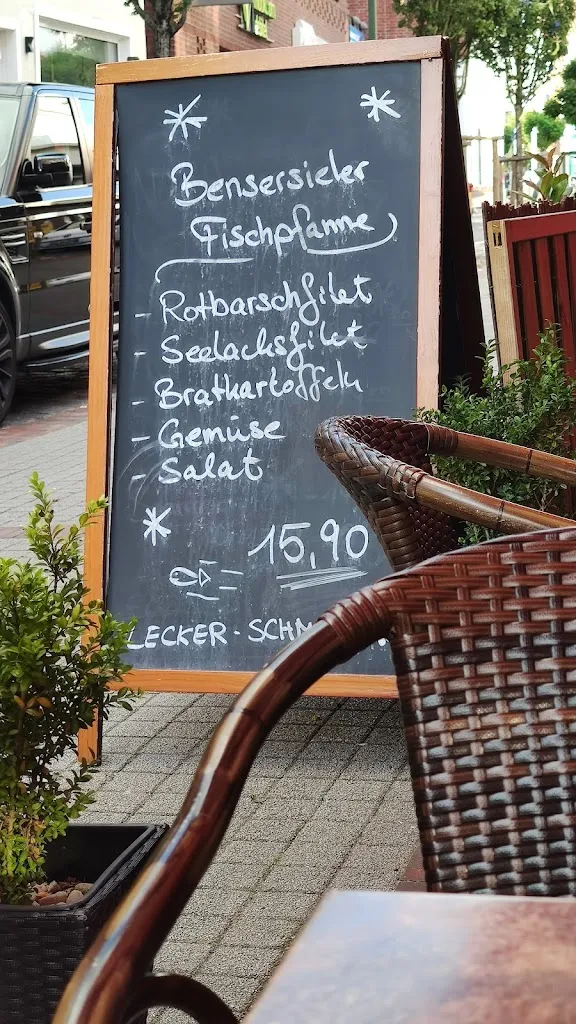 Bensersieler
Fischpfanne
- Rotbarschfilet
- Seelachsfilet
- Bratkartoffeln
- Gemüse
- Salat
15,90
LECKER -